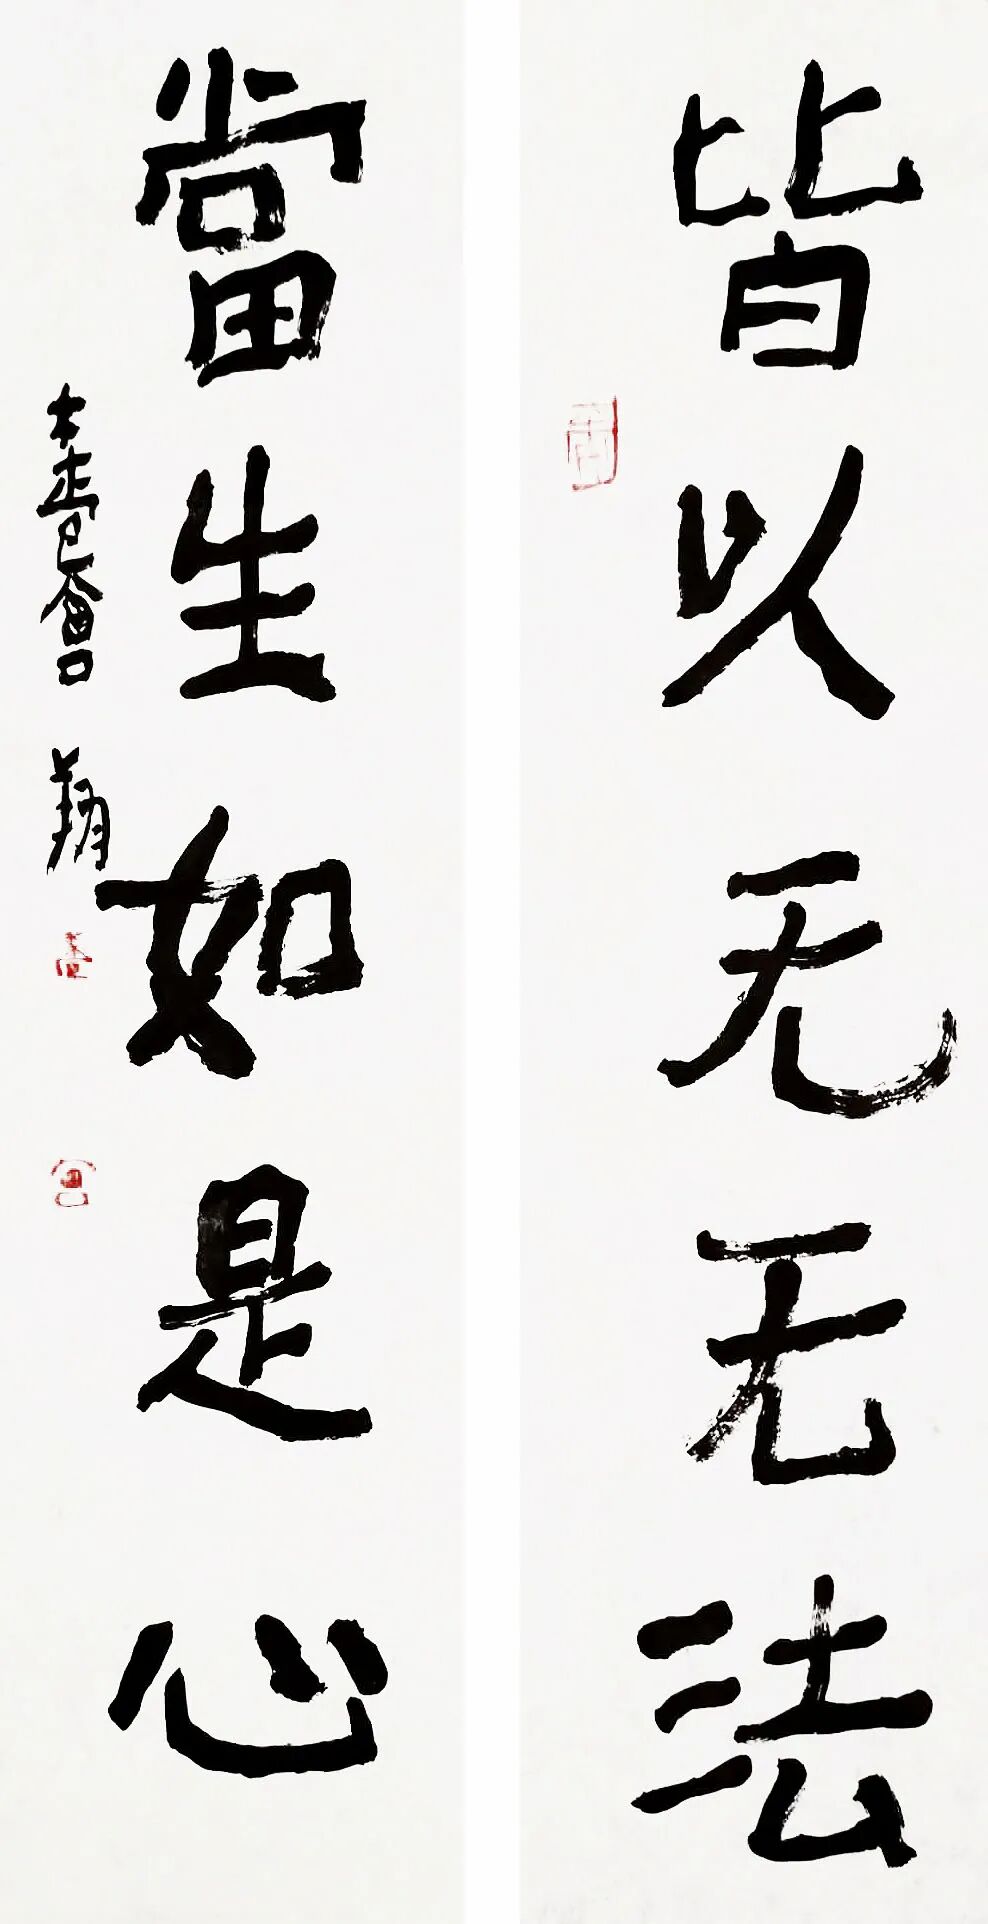 皆以无无法
當生如是心